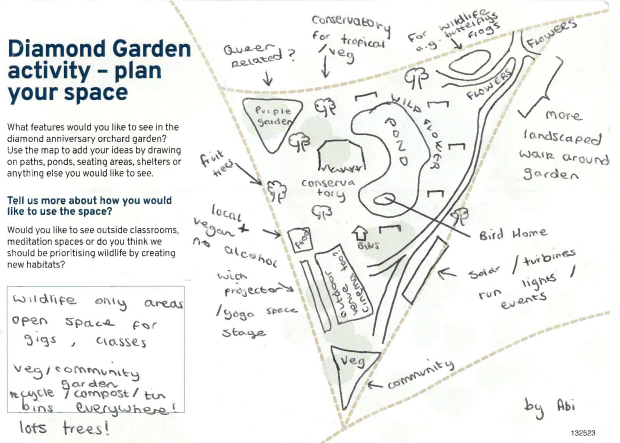 Diamond Garden
activity – plan
your space
What features would you like to see in the
diamond anniversary orchard garden?
Use the map to add your ideas by drawing
on paths, ponds, seating areas, shelters or
anything else you would like to see.
Tell us more about how you would
like to use the space?
Would you like to see outside classrooms,
meditation spaces or do you think we
should be prioritising wildlife by creating
new habitats?
Wildlife only areas
open space for
gigs, classes
veg/community
garden
recycle / compost / tin
bins everywhere!
lots trees!
Queer
related?
conservatory
for tropical
/ veg
For wildlife
e.g. butterflies
frogs
FLOWERS
FLOWERS
Purple
garden
WILD FLOWER
POND
more
landscaped
walk around
garden
fruit
trees
conserva
tory
local
vegan +
no alcohol
Food
BINS
Bird Home
with
projector
/yoga space
stage
outdoor
venue
cinema too?
Solar / turbines
run lights /
events
veg
community
by Abi
132523